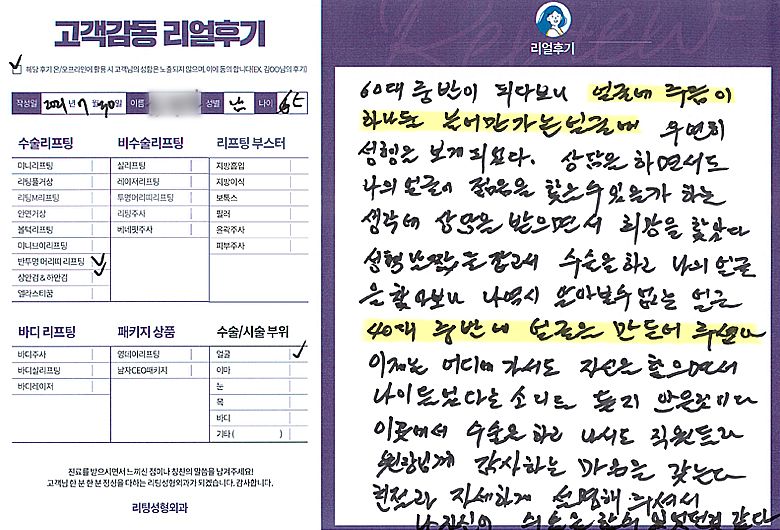 고객감동 리얼후기
해당 후기 온/오프라인에 활용 시 고객님의 성함은 노출되지 않으며, 이에 동의 합니다(EX. 김OO님의 후기)
작성일 2021년 7월 20일 이름 성별 남 나이
수술리프팅
미니리프팅
리팅풀거상
리팅M리프팅
안면거상
볼턱리프팅
미니브이리프팅
반투명 머리띠 리프팅
상안검 & 하안검
엘라스티꿈
비수술리프팅
실리프팅
레이저리프팅
투명머리띠리프팅
리팅주사
베네핏주사
리프팅 부스터
지방흡입
지방이식
보톡스
필러
윤곽주사
피부주사
바디 리프팅
바디주사
바디실리프팅
바디레이저
패키지 상품
영데이리프팅
남자CEO패키지
수술/시술 부위
얼굴
이마
눈
목
바디
기타 ( )
진료를 받으시면서 느끼신 점이나 칭찬의 말씀을 남겨주세요!
고객님 한 분 한 분 정성을 다하는 리팅성형외과가 되겠습니다. 감사합니다.
리팅성형외과
리얼후기
60대 중반이 되다보니 얼굴에 주름이
하나둘 늘어만가는 얼굴에 우연히
성형을 보게되었다. 상담을 하면서도
나의 얼굴이 젊음을 찾을수 있을가 하는
생각에 상담을 받으면서 희망을 찾았다
성형 날짜를 잡고서 수술을 하고 나의 얼굴
을 찾아보니 나역시 알아볼수 없는 얼굴
40대 중반에 얼굴을 만들어 주셨다
이제는 어디에 가서도 자신을 찾으면서
나이들었다는 소리도 듣지 않을것이다
이곳에서 수술을 하고 나서도 직원들과
원장님께 감사하는 마음을 갖는다
친절과 자세하게 설명해 주셔서
나 자신이 수술을 할수 있었던것 같다